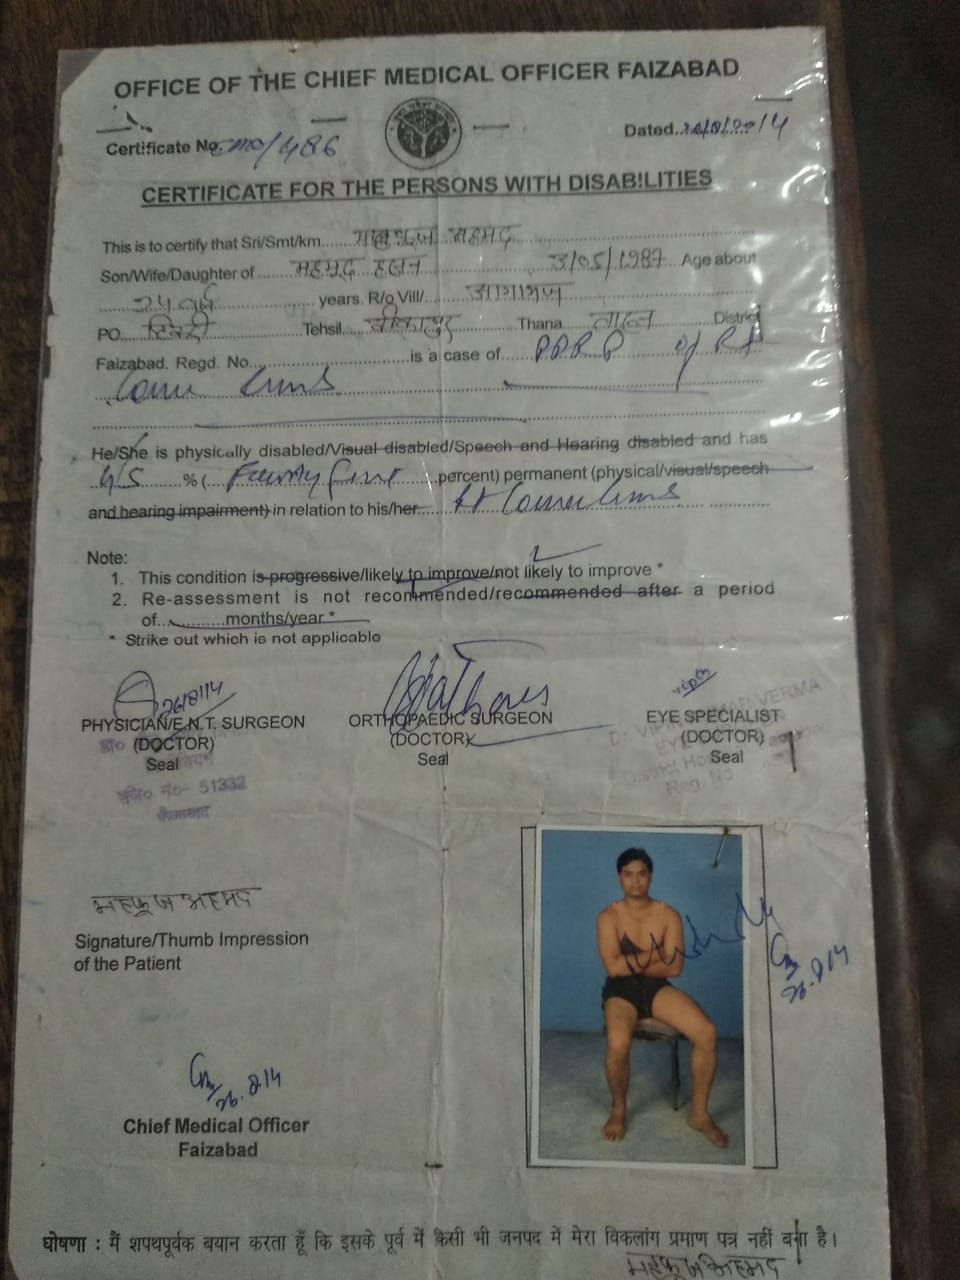 OFFICE OF THE CHIEF MEDICAL OFFICER FAIZABAD
Certificate No. CMO/486
Dated. 26/8/2014
CERTIFICATE FOR THE PERSONS WITH DISABILITIES
This is to certify that Sri/Smt/km. महफूज अहमद
Son/Wife/Daughter of महमूद हसन 3/05/1987 Age about
years. R/o Vill/
PO. Tehsil. बीकापुर Thana. District
Faizabad. Regd. No. is a case of PPRP of Rt
Lower Limb
He/She is physically disabled/Visual disabled/Speech and Hearing disabled and has
45 % ( Fourty five percent) permanent (physical/visual/speech
and hearing impairment) in relation to his/her Rt Lower Limb
Note:
1. This condition is progressive/likely to improve/not likely to improve *
2. Re-assessment is not recommended/recommended after a period
of months/year *
* Strike out which is not applicable
26/8/14
PHYSICIAN/E.N.T. SURGEON ORTHOPAEDIC SURGEON EYE SPECIALIST
(DOCTOR) (DOCTOR) (DOCTOR)
Seal Seal Seal
51332
VERMA
Reg. No
महफूज अहमद
Signature/Thumb Impression
of the Patient
26.8.14
26.8.14
Chief Medical Officer
Faizabad
घोषणा : मैं शपथपूर्वक बयान करता हूँ कि इसके पूर्व में कैसी भी जनपद में मेरा विकलांग प्रमाण पत्र नहीं बना है।
महफूज अहमद